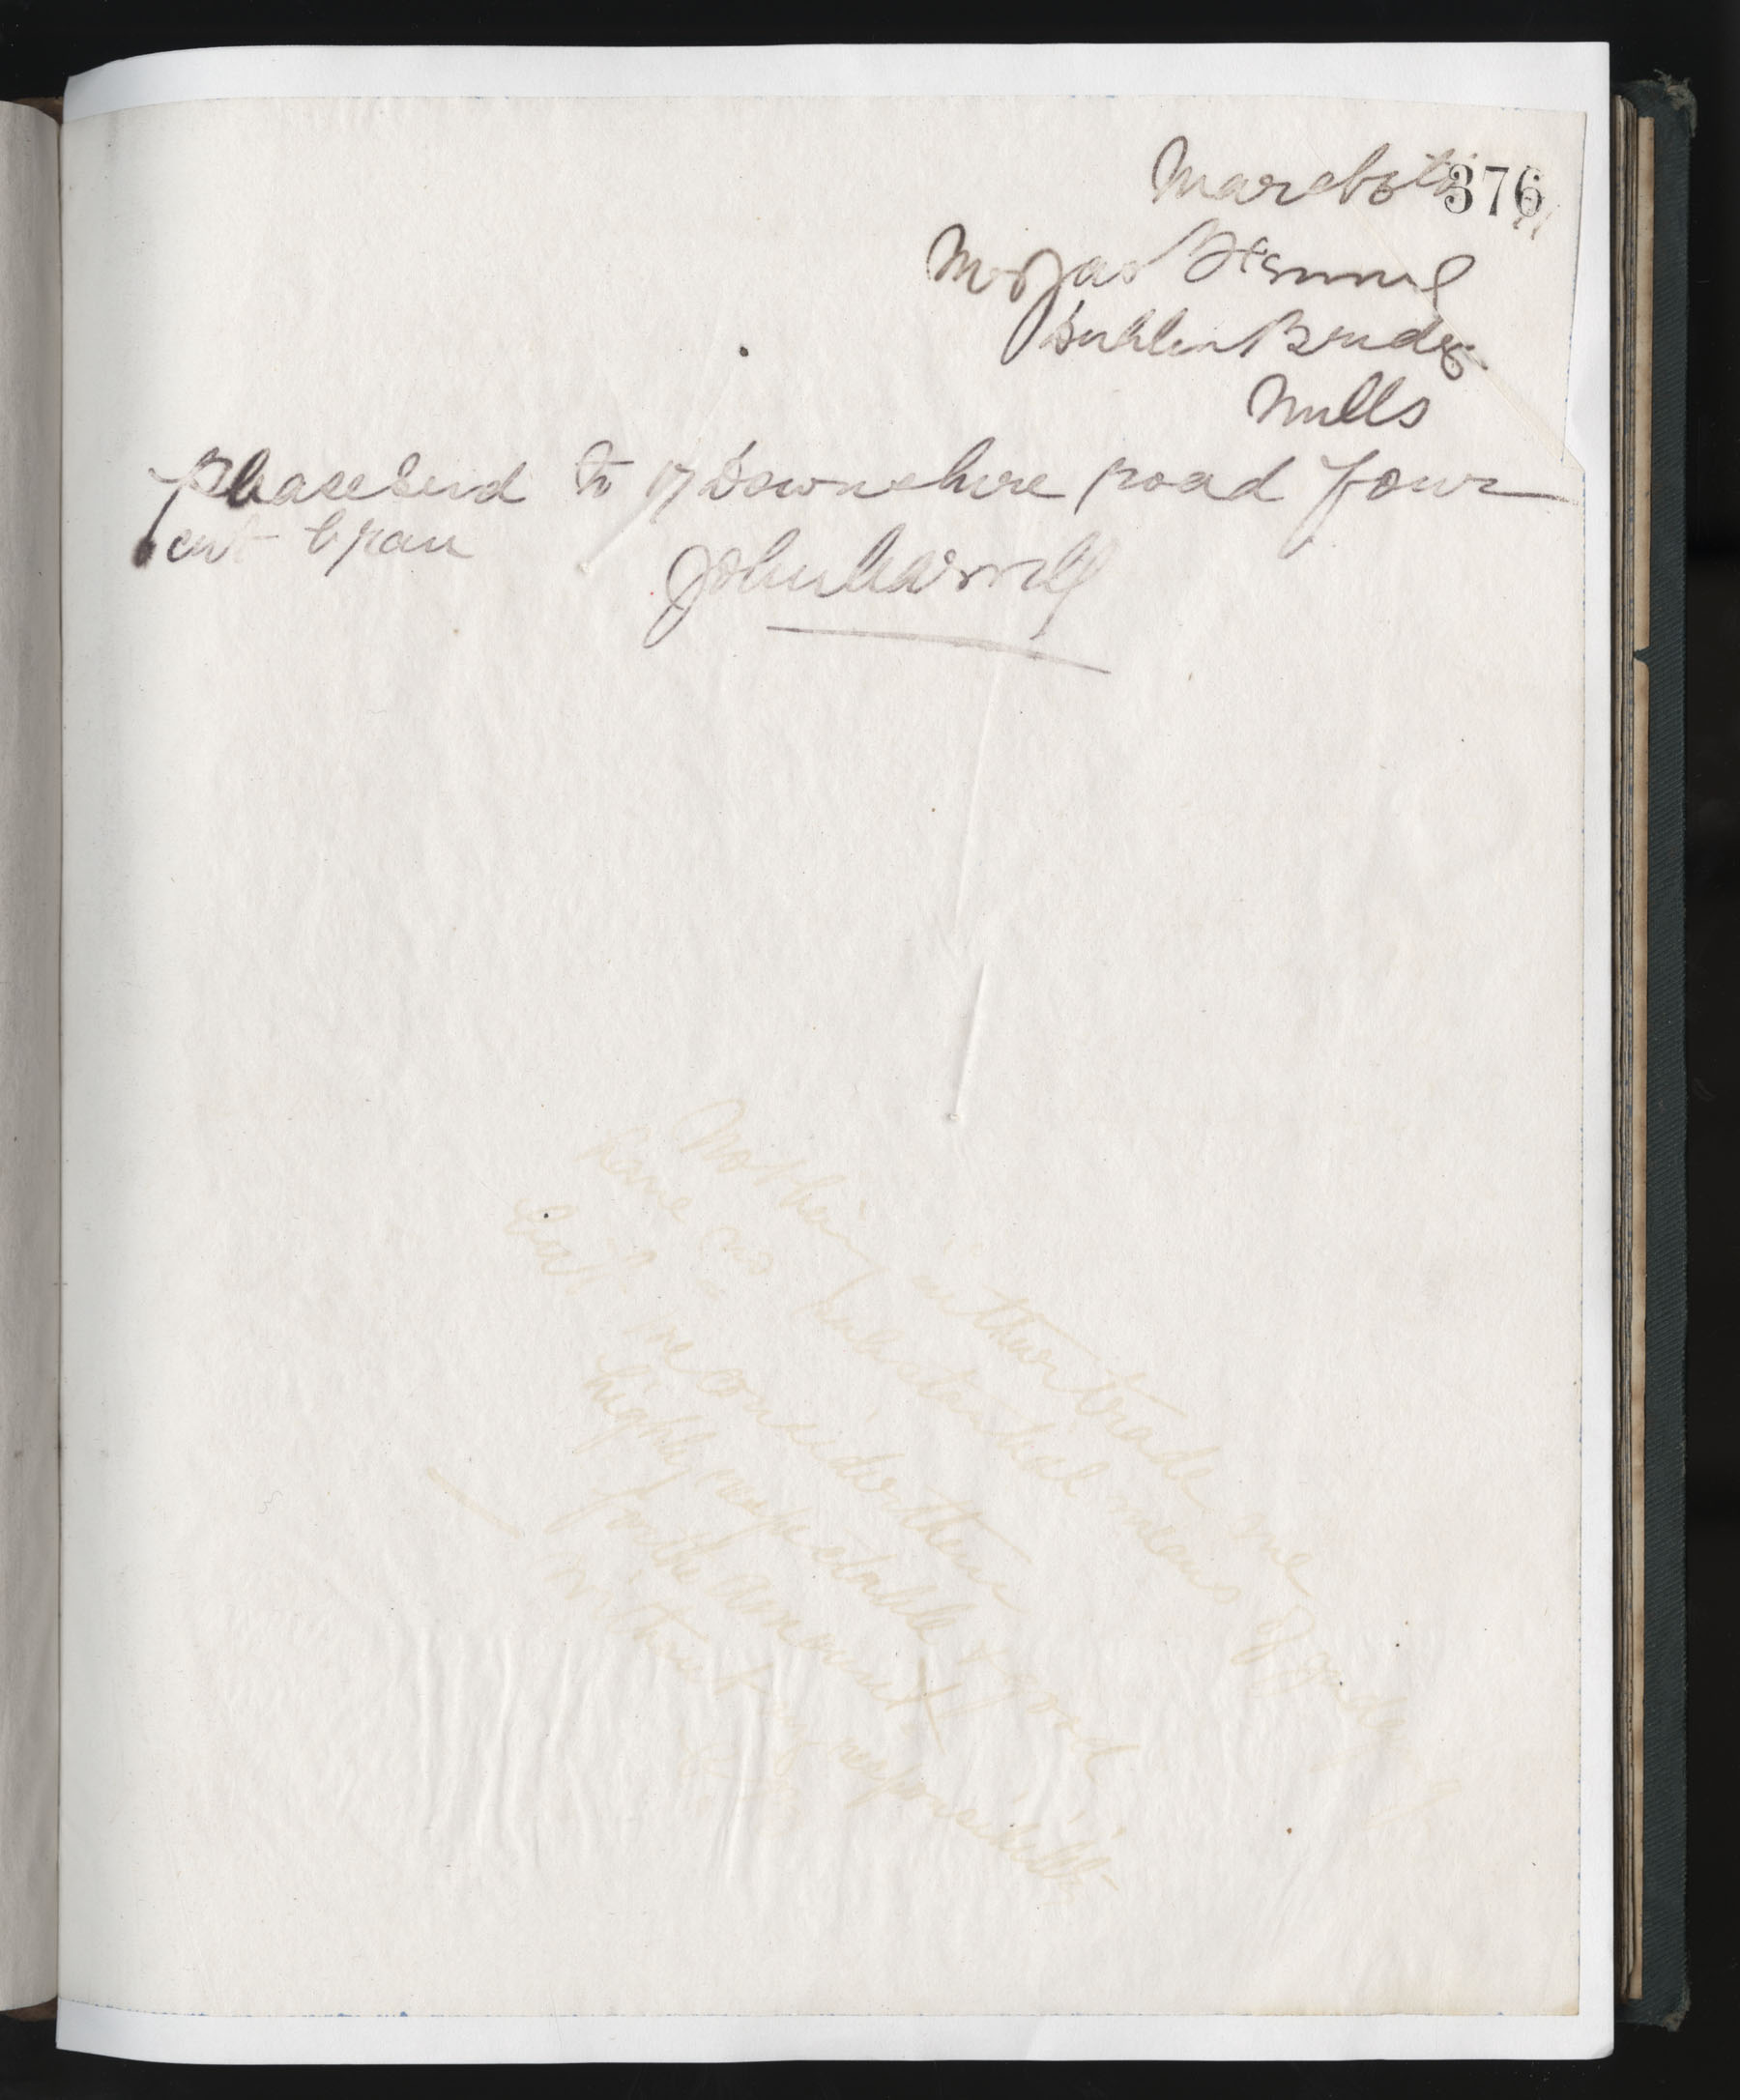 March 6th
376
Messrs Jas
Dublin Bridge
Mills
Please Send to 17 Downshire road four
cwt bran
John
Nothing in their trade we
have no substantial means of judging
but we consider them
highly respectable & good
for the amount
without responsibility